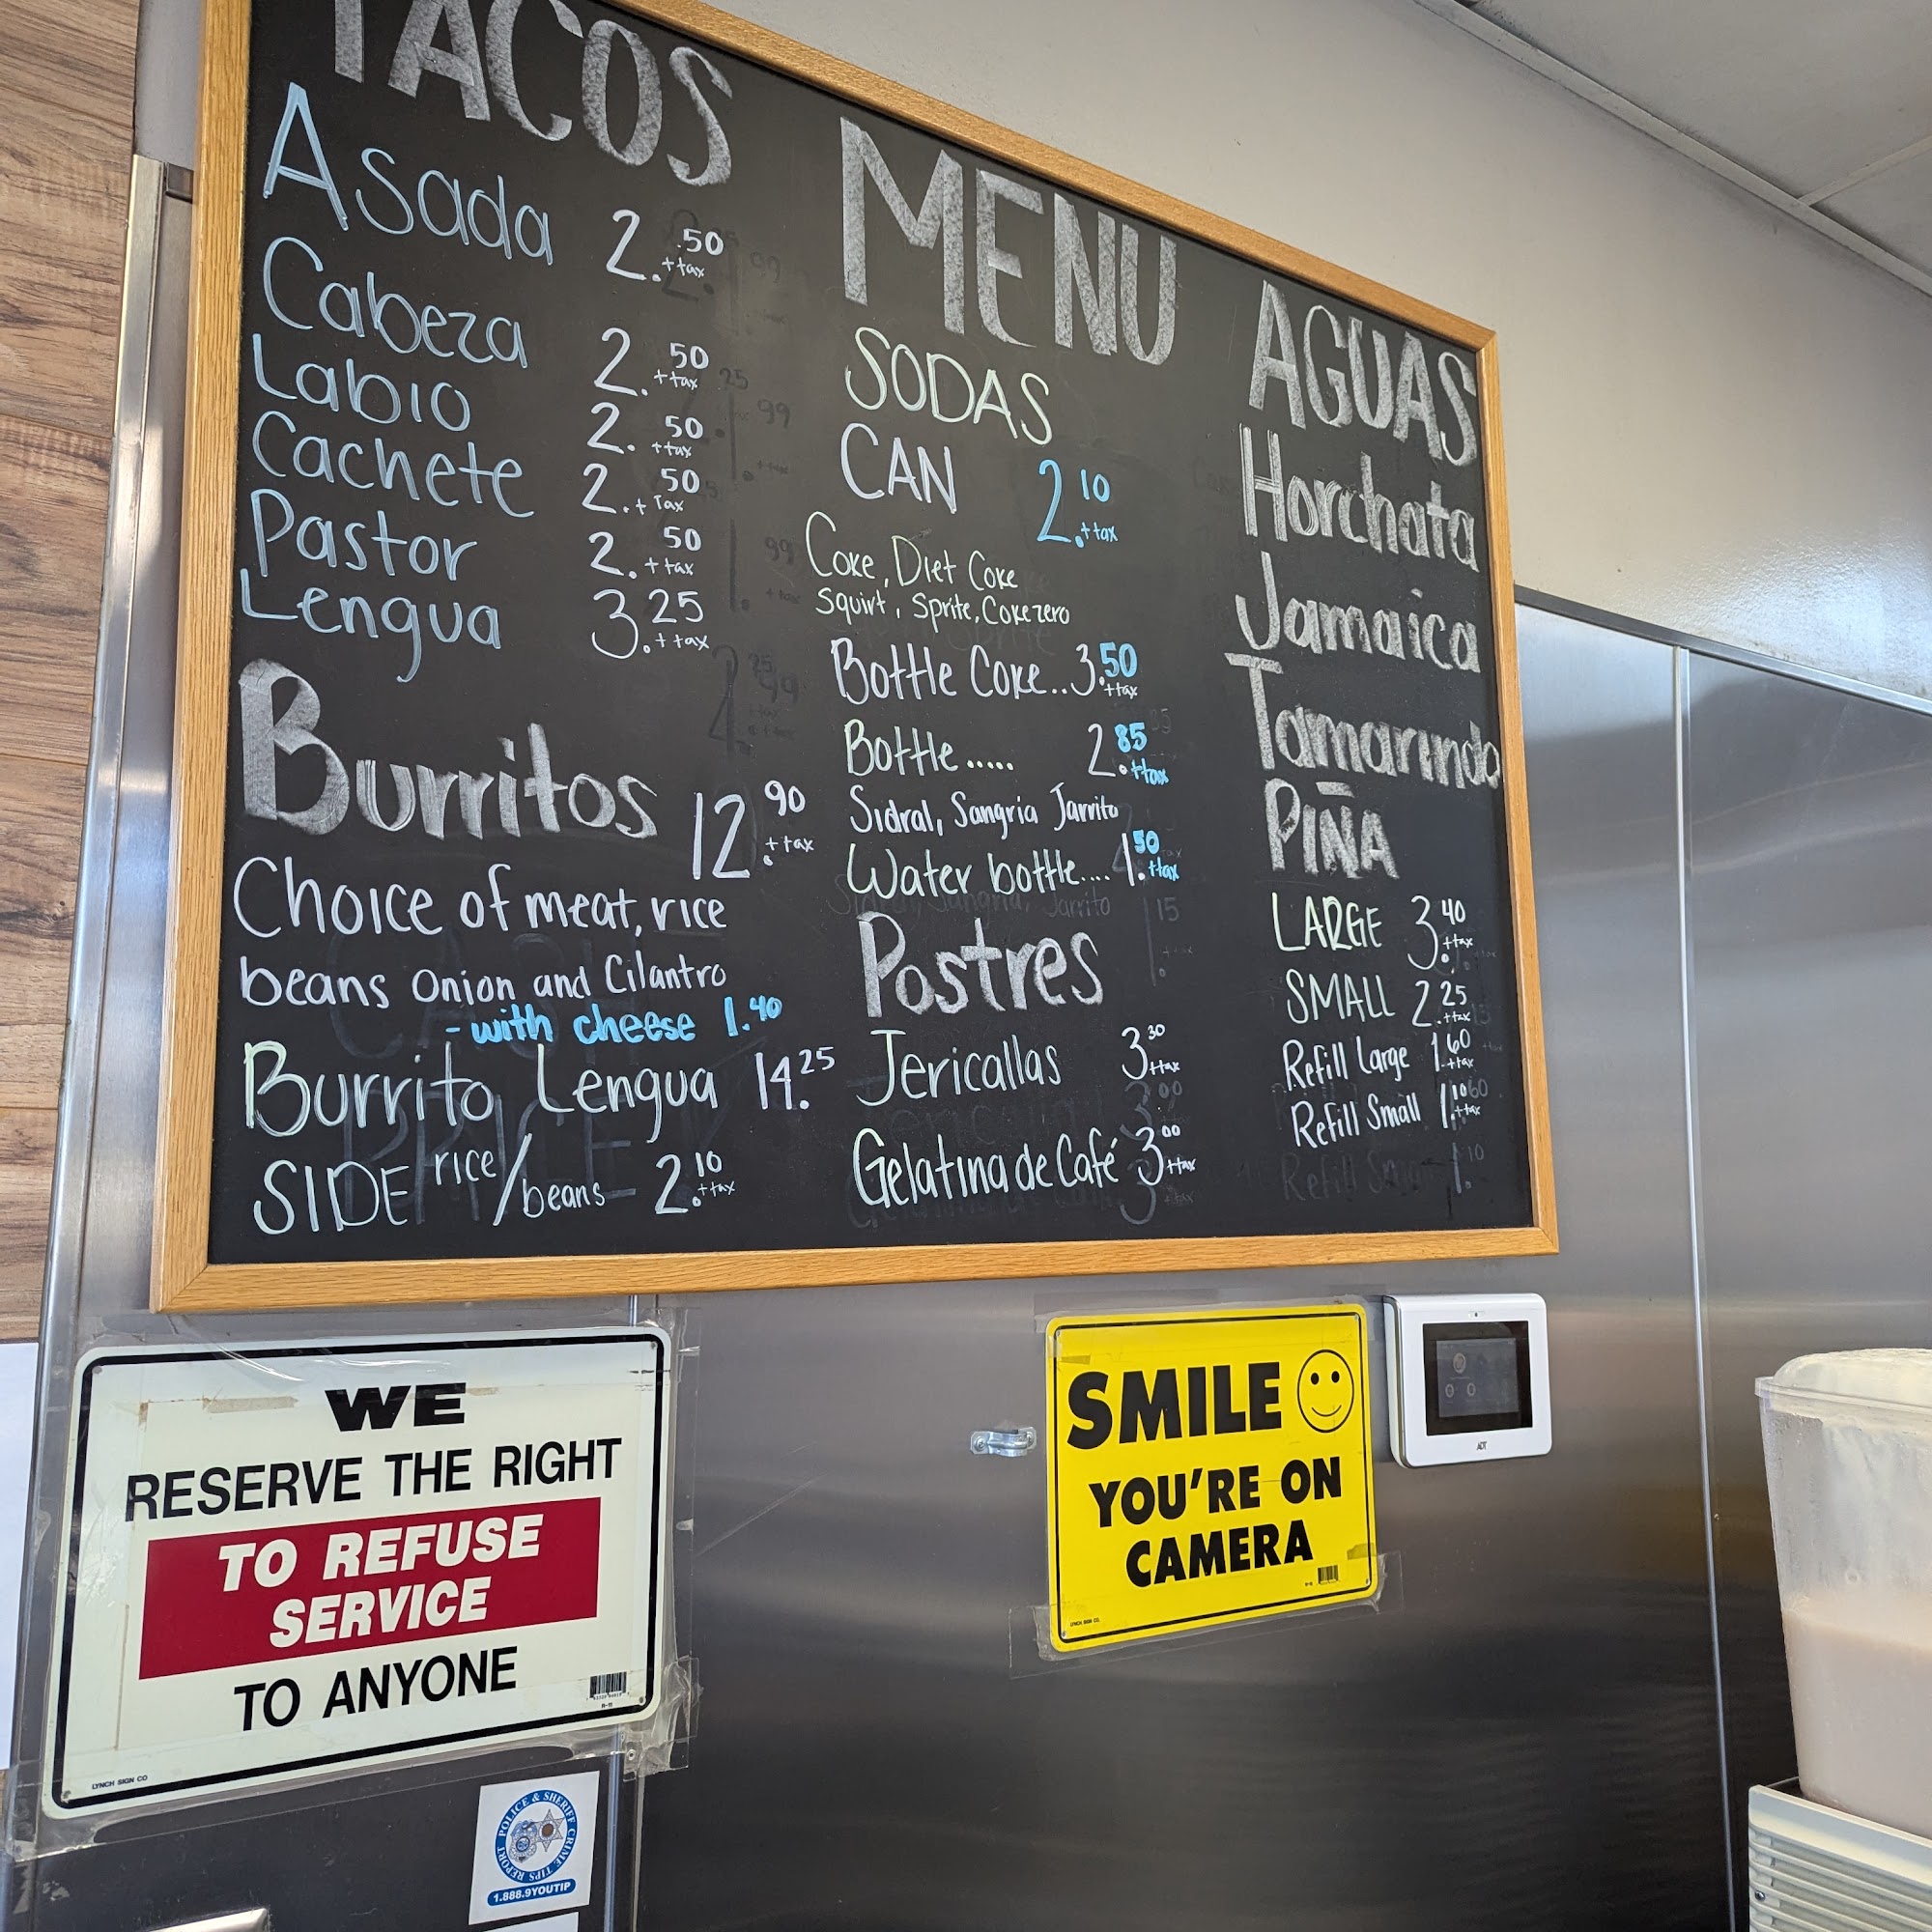 TACOS
Asada 2.50 +tax
Cabeza 2.50 +tax
Labio 2.50 +tax
Cachete 2.50 + Tax
Pastor 2.50 +tax
Lengua 3.25 +tax
Burritos 12.90 +tax
Choice of meat, rice
beans onion and Cilantro
- with cheese 1.40
Burrito Lengua 14.25
SIDE rice/beans - 2.10 +tax
MENU
SODAS
CAN 2.10 +tax
Coke, Diet Coke
Squirt, Sprite, Coke zero
Bottle Coke..3.50 +tax
Bottle..... 2.85 +tax
Sidral, Sangria Jarrito
Water bottle.... 1.50 +tax
Postres
Jericallas 3.30 +tax
Gelatina de Café 3.00 +tax
AGUAS
Horchata
Jamaica
Tamarindo
PIÑA
LARGE 3.40 +tax
SMALL 2.25 +tax
Refill Large 1.60 +tax
Refill Small 1.10 +tax
WE
RESERVE THE RIGHT
TO REFUSE
SERVICE
TO ANYONE
LYNCH SIGN CO
SMILE
YOU'RE ON
CAMERA
LYNCH SIGN CO.
ADT
POLICE & SHERIFF CRIME TIPS REPORT
1.888.9YOUTIP